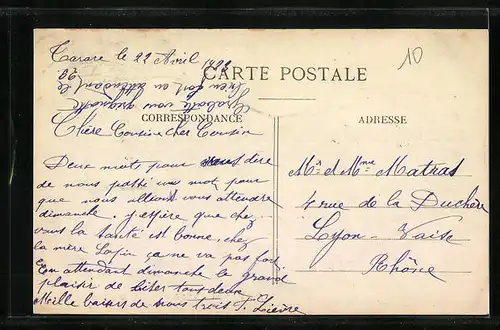 Tarare le 22 Avril
10
CARTE POSTALE
CORRESPONDANCE
ADRESSE
Chère Cousine cher Cousin
Deux mots pour vous dire
de nous passé un mot pour
que nous allions vous attendre
dimanche. j'espère que chez
vous la santé est bonne, chez
la mère ça ne va pas fort
En attendant dimanche le grand
plaisir de biser tous deux
Mille baisers de nous trois
Mr et Mme Matras
rue de la Duchère
Lyon-Vaise
Rhône